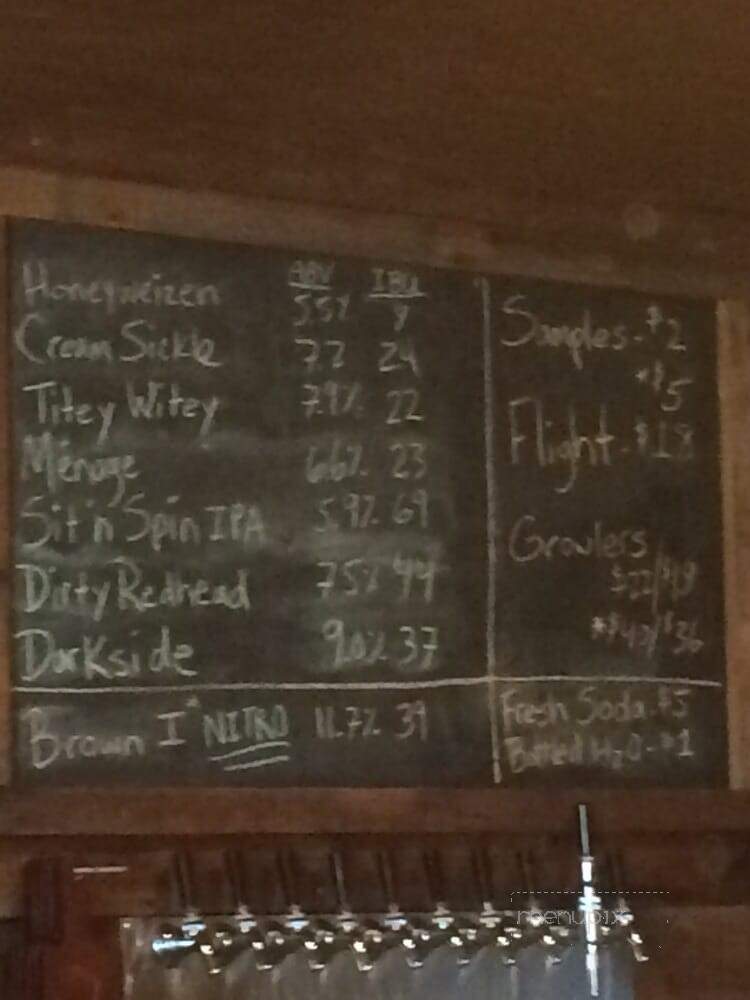 ABV IBU
Honeyweizen 5.5%
Cream Sickle 7.2 24
Titey Witey 7.9% 22
Ménage 6.6% 23
Sit'n Spin IPA 5.9% 69
Dirty Redhead 7.5% 44
Darkside 9.0% 37
Brown I* NITRO 11.7% 39
Samples - $2
*$5
Flight - $18
Growlers
Fresh Soda - $5
Bottled H2O - $1
menupix